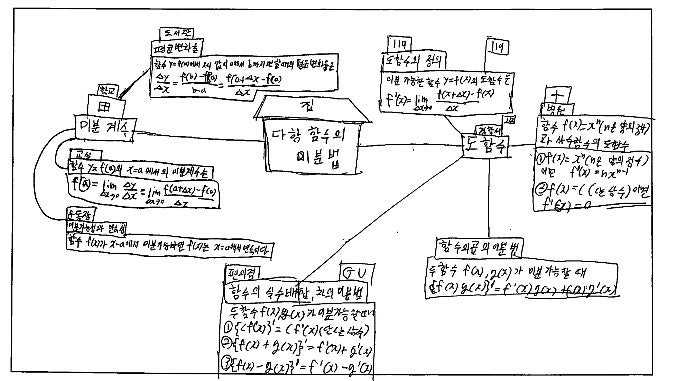 도서관
평균변화율
함수 y=f(x)에서 x의 값이 a에서 b까지 변할 때의 평균변화율은
Δy/Δx = f(b)-f(a)/b-a = f(a+Δx)-f(a)/Δx
학교
미분 계수
교실
함수 y=f(x)의 x=a에서의 미분계수는
f'(a) = lim Δx→0 Δy/Δx = lim Δx→0 f(a+Δx)-f(a)/Δx
운동장
미분가능성과 연속성
함수 f(x)가 x=a에서 미분가능하면 f(x)는 x=a에서 연속이다
집
다항 함수의
미분법
119
119
도함수의 정의
미분 가능한 함수 y=f(x)의 도함수는
f'(x) = lim Δx→0 f(x+Δx)-f(x)/Δx
경찰서
도함수
병원
함수 f(x)=xⁿ(n은 양의 정수)
과 상수함수의 도함수
① f(x)=xⁿ(n은 양의 정수)
이면 f'(x)=nxⁿ⁻¹
② f(x)=c(c는 상수)이면
f'(x)=0
함수의 곱의 미분법
두 함수 f(x), g(x)가 미분가능할 때
{f(x)g(x)}'=f'(x)g(x)+f(x)g'(x)
편의점
GU
함수의 실수배, 합, 차의 미분법
두 함수 f(x), g(x)가 미분가능할 때
① {cf(x)}'=cf'(x)(단 c는 상수)
② {f(x)+g(x)}'=f'(x)+g'(x)
③ {f(x)-g(x)}'=f'(x)-g'(x)